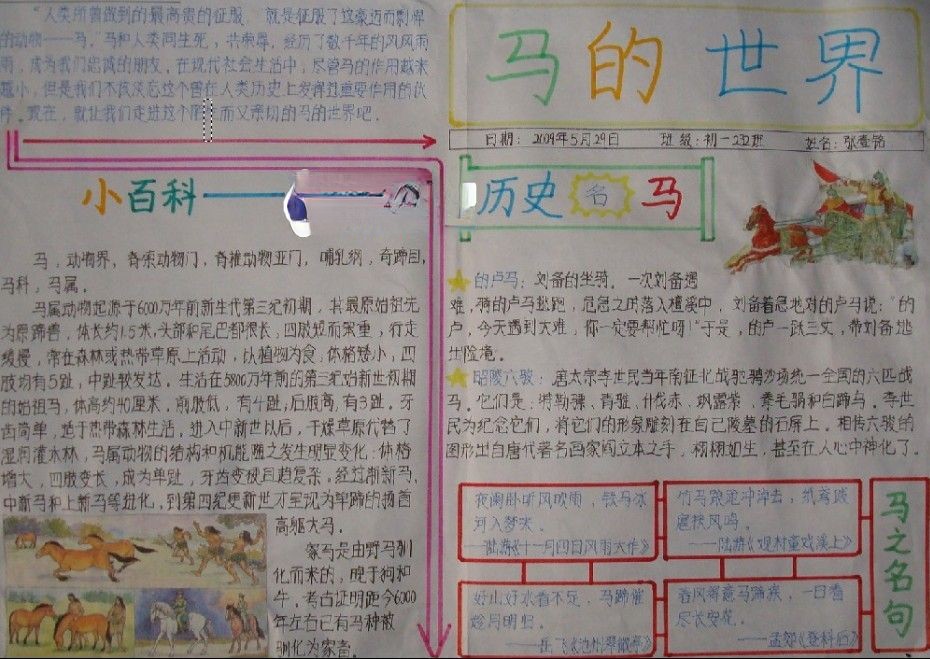 “人类所曾做到的最高贵的征服，就是征服了这豪迈而剽悍
的动物——马。”马和人类同生死，共荣辱，经历了数千年的风风雨
雨，成为我们忠诚的朋友。在现代社会生活中，尽管马的作用越来
越小，但是我们不该没忘这个曾在人类历史上发挥过重要作用的伙
伴。现在，就让我们走进这个 而又亲切的马的世界吧。
马的世界
日期：2009年5月29日 班级：初一232班 姓名：张
小百科
马，动物界，脊索动物门，脊椎动物亚门，哺乳纲，奇蹄目，
马科，马属。
马属动物起源于6000万年前新生代第三纪初期，其最原始祖先
为原蹄兽，体长约1.5米，头部和尾巴都很长，四肢短而笨重，行走
缓慢，常在森林或热带草原上活动，以植物为食，体格矮小，四
肢均有5趾，中趾较发达。生活在5800万年前的第三纪始新世初期
的始祖马，体高约40厘米。前肢低，有4趾；后肢高，有3趾。牙
齿简单，适于热带森林生活。进入中新世以后，干燥草原代替了
湿润灌木林，马属动物的结构和机能随之发生明显变化：体格
增大，四肢变长，成为单趾，牙齿变硬且趋复杂。经过渐新马、
中新马和上新马等进化，到第四纪更新世才呈现为单蹄的扬首
高躯大马。
家马是由野马驯
化而来的，晚于狗和
牛。考古证明距今6000
年左右已有马种被
驯化为家畜。
历史名马
的卢马：刘备的坐骑。一次刘备遇
难，骑的卢马逃跑，危急之时落入檀溪中，刘备着急地对的卢马说：“的
卢，今天遇到大难，你一定要帮忙呀！”于是，的卢一跃三丈，带刘备逃
出险境。
昭陵六骏：唐太宗李世民当年南征北战驰骋沙场统一全国的六匹战
马。它们是：特勒骠、青骓、什伐赤、飒露紫、拳毛騧和白蹄乌。李世
民为纪念它们，将它们的形象雕刻在自己陵墓的石屏上。相传六骏的
图形出自唐代著名画家阎立本之手，栩栩如生，甚至在人心中神化了。
夜阑卧听风吹雨，铁马冰
河入梦来。
——陆游《十一月四日风雨大作》
竹马踉跄冲淖去，纸鸢跋
扈挟风鸣。
——陆游《观村童戏溪上》
好山好水看不足，马蹄催
趁月明归。
——岳飞《池州翠微亭》
春风得意马蹄疾，一日看
尽长安花。
——孟郊《登科后》
马之名句